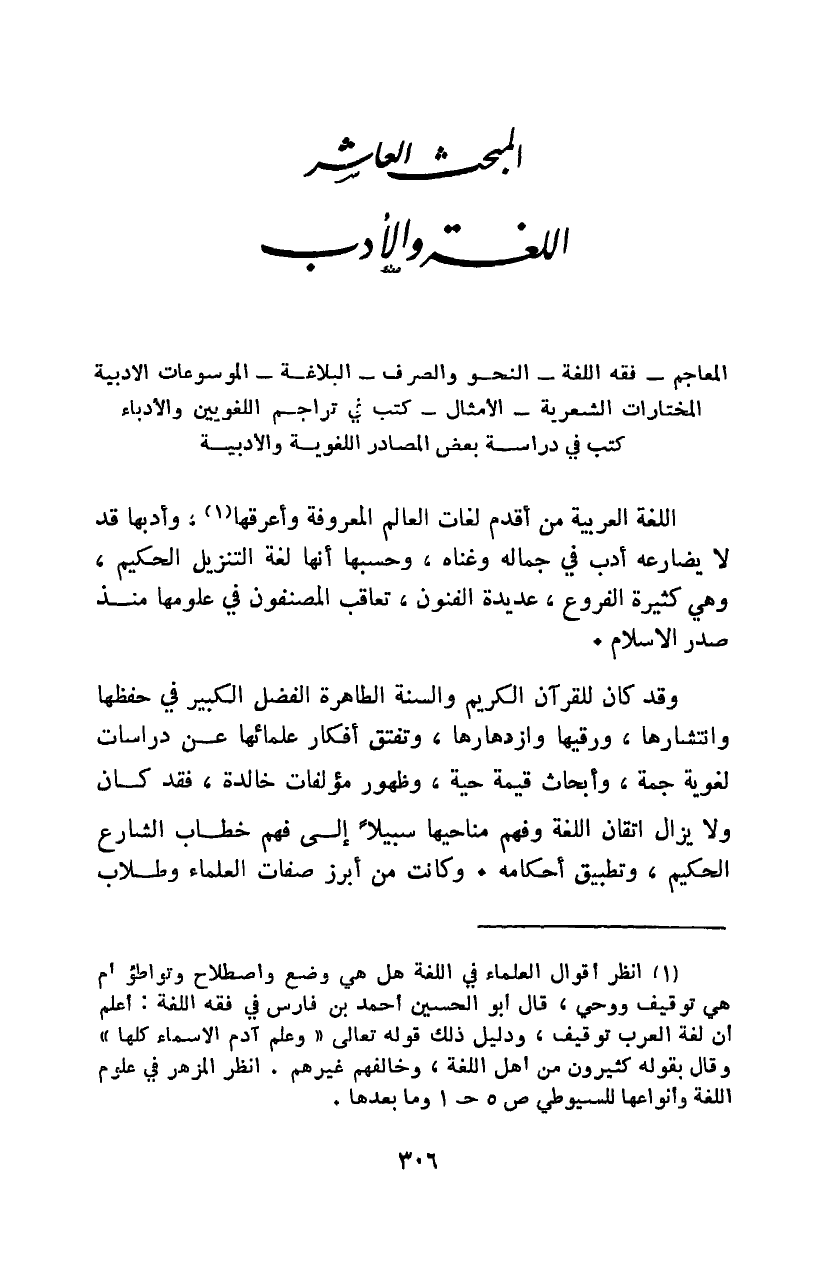 المبحث العاشر
اللغة والأدب
المعاجم – فقه اللغة – النحو والصرف – البلاغة – الموسوعات الادبية
المختارات الشعرية – الأمثال – كتب في تراجم اللغويين والأدباء
كتب في دراسة بعض المصادر اللغوية والأدبية
اللغة العربية من أقدم لغات العالم المعروفة وأعرقها(١) ، وأدبها قد
لا يضارعه أدب في جماله وغناه ، وحسبها أنها لغة التنزيل الحكيم ،
وهي كثيرة الفروع ، عديدة الفنون ، تعاقب المصنفون في علومها منذ
صدر الاسلام .
وقد كان للقرآن الكريم والسنة الطاهرة الفضل الكبير في حفظها
وانتشارها ، ورقيها وازدهارها ، وتفتق أفكار علمائها عن دراسات
لغوية جمة ، وأبحاث قيمة حية ، وظهور مؤلفات خالدة ، فقد كان
ولا يزال اتقان اللغة وفهم مناحيها سبيلاً إلى فهم خطاب الشارع
الحكيم ، وتطبيق أحكامه . وكانت من أبرز صفات العلماء وطلاب
(١) انظر أقوال العلماء في اللغة هل هي وضع واصطلاح وتواطؤ أم
هي توقيف ووحي ، قال أبو الحسين أحمد بن فارس في فقه اللغة : أعلم
أن لغة العرب توقيف ، ودليل ذلك قوله تعالى « وعلم آدم الاسماء كلها »
وقال بقوله كثيرون من أهل اللغة ، وخالفهم غيرهم . انظر المزهر في علوم
اللغة وأنواعها للسيوطي ص ٥ حـ ١ وما بعدها .
٣٠٦